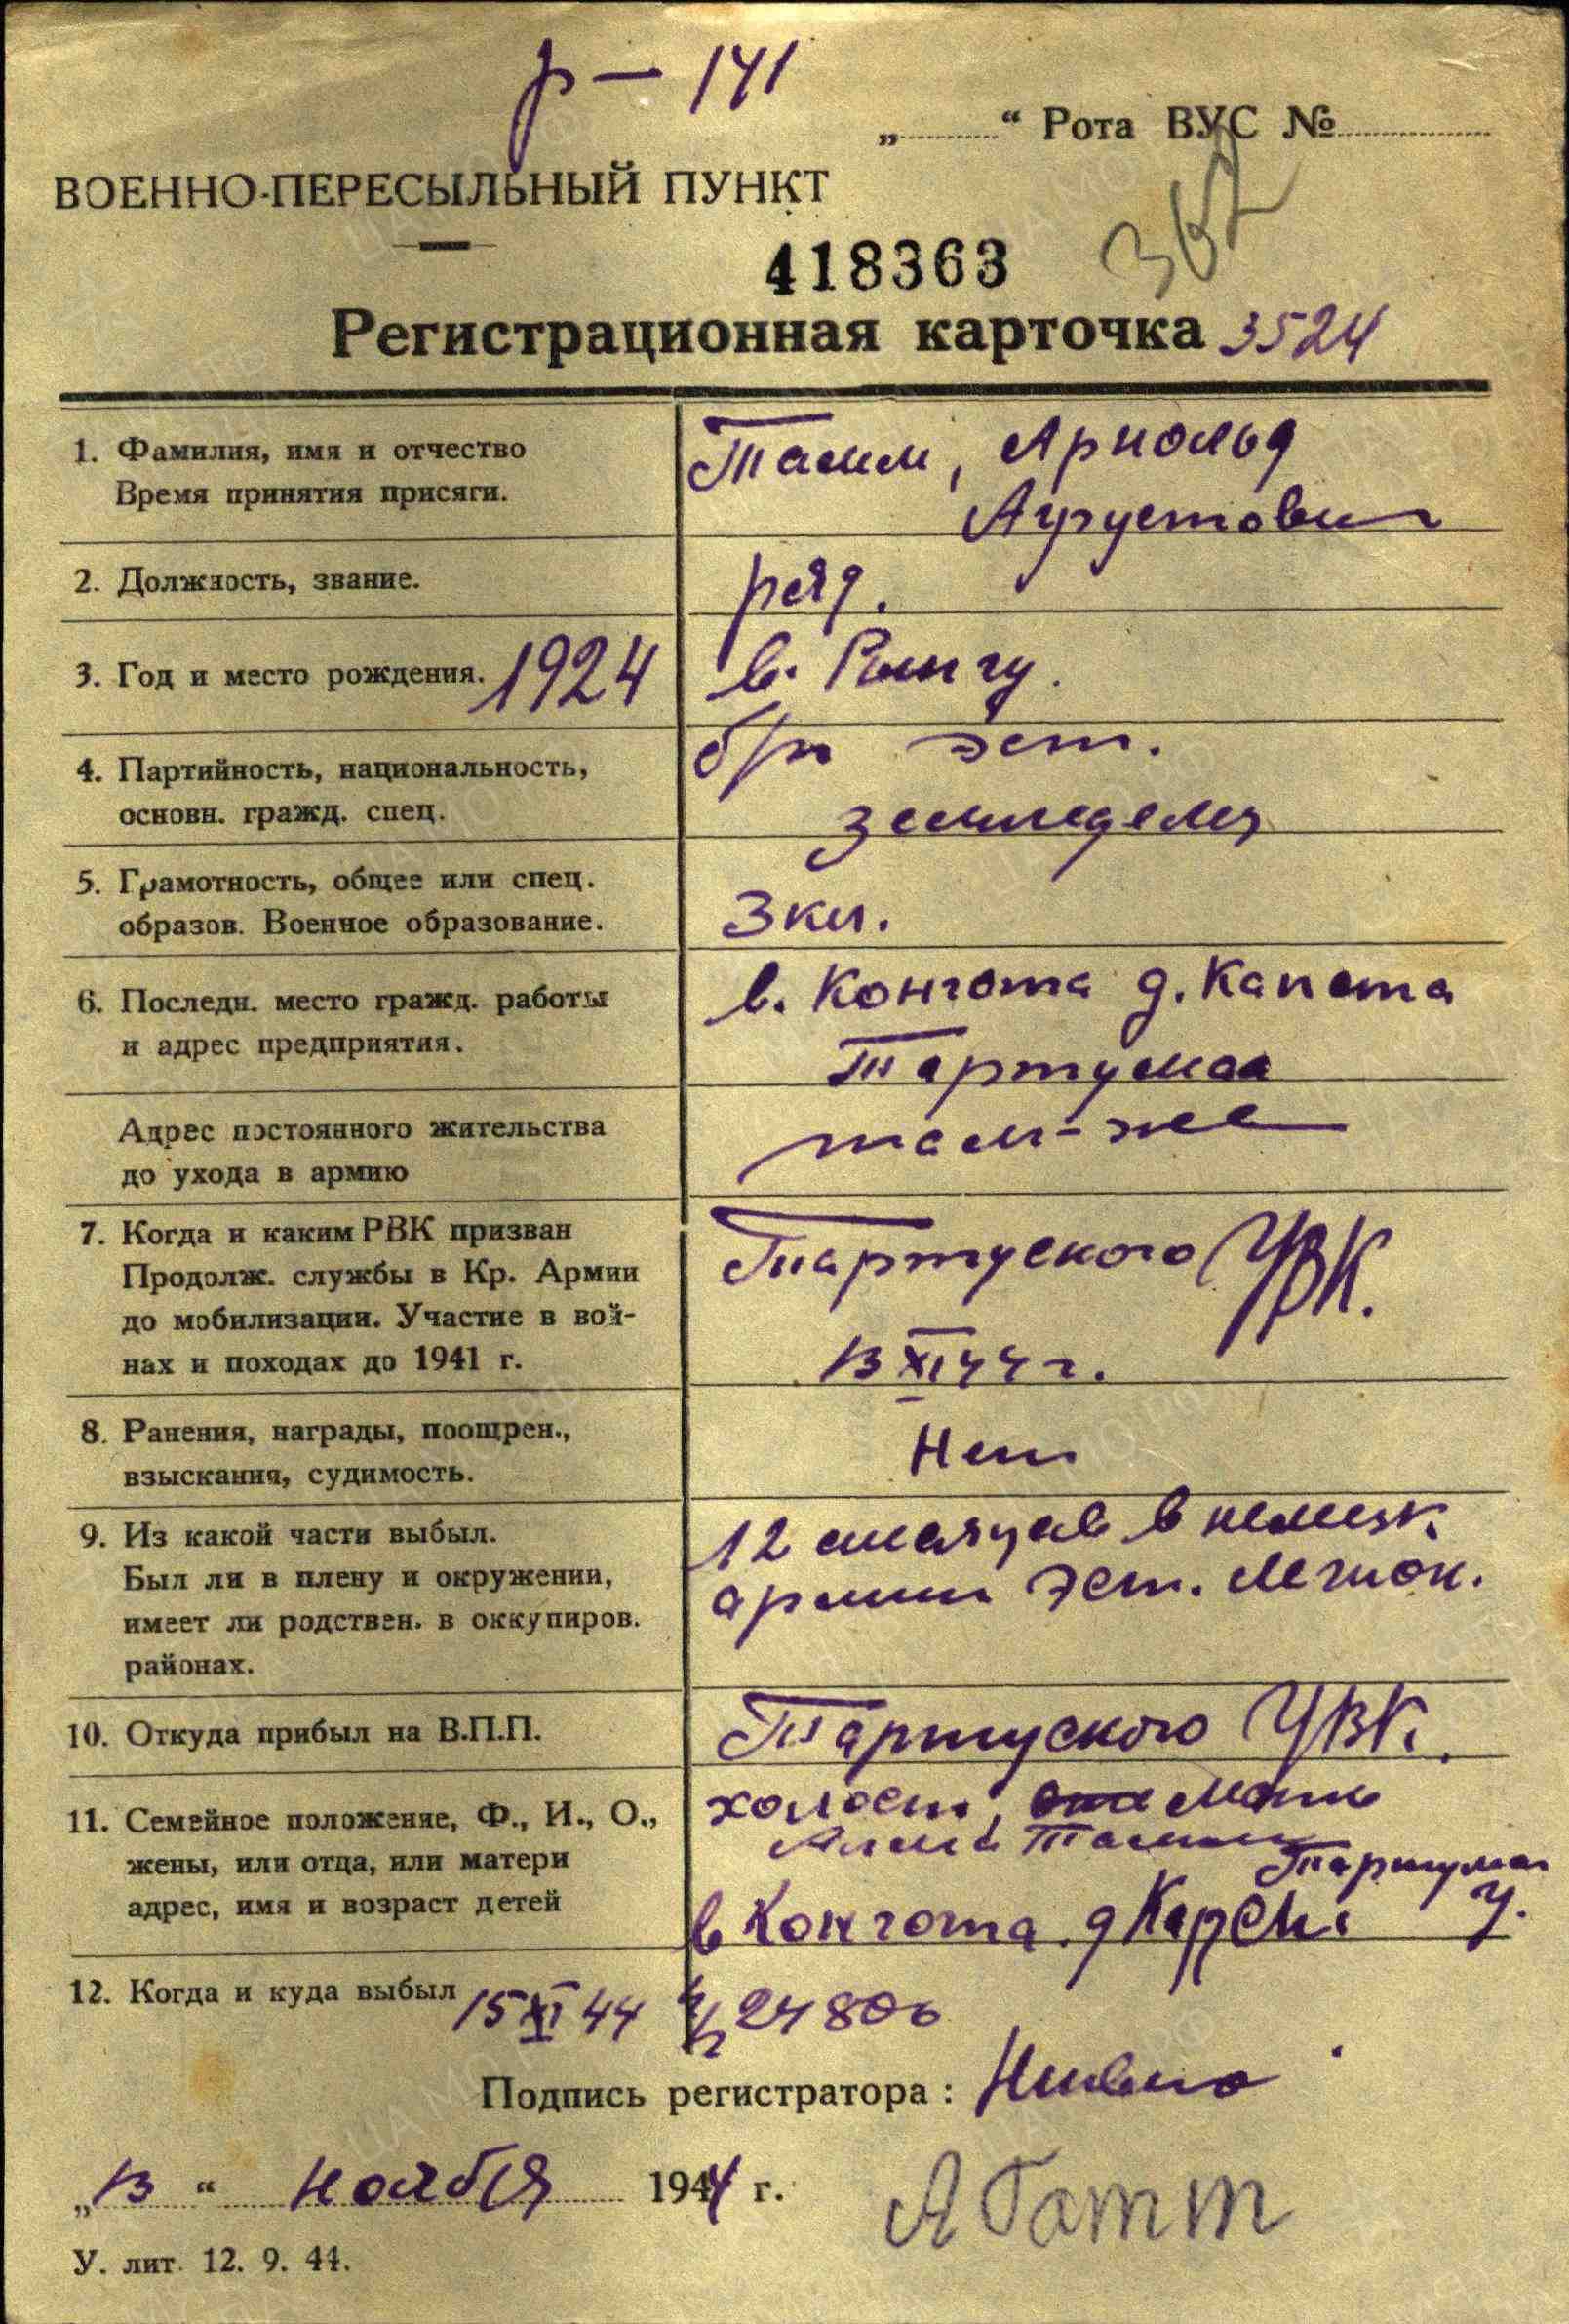 р — 141
„ “ Рота ВУС №
ВОЕННО-ПЕРЕСЫЛЬНЫЙ ПУНКТ
418363
Регистрационная карточка 3524
1. Фамилия, имя и отчество
Время принятия присяги.
Тамм, Арнольд
Аугустович
2. Должность, звание.
ряд.
3. Год и место рождения. 1924
в. Рынгу.
4. Партийность, национальность,
основн. гражд. спец.
б/п эст.
земледелец
5. Грамотность, общее или спец.
образов. Военное образование.
3 кл.
6. Последн. место гражд. работы
и адрес предприятия.
в. Конгота д. Капста
Тартумаа
Адрес постоянного жительства
до ухода в армию
там-же
7. Когда и каким РВК призван
Продолж. службы в Кр. Армии
до мобилизации. Участие в вой-
нах и походах до 1941 г.
Тартуского УВК.
13 XI 44 г.
8. Ранения, награды, поощрен.,
взыскания, судимость.
Нет
9. Из какой части выбыл.
Был ли в плену и окружении,
имеет ли родствен. в оккупиров.
районах.
12 месяцев в немецк.
армии эст. легион.
10. Откуда прибыл на В.П.П.
Тартуского УВК.
11. Семейное положение, Ф., И., О.,
жены, или отца, или матери
адрес, имя и возраст детей
холост, мать
Тамм
Тартумаа
в Конгота д у.
12. Когда и куда выбыл 15 XI 44 24806
Подпись регистратора:
„13“ ноября 1944 г.
У. лит. 12. 9. 44.